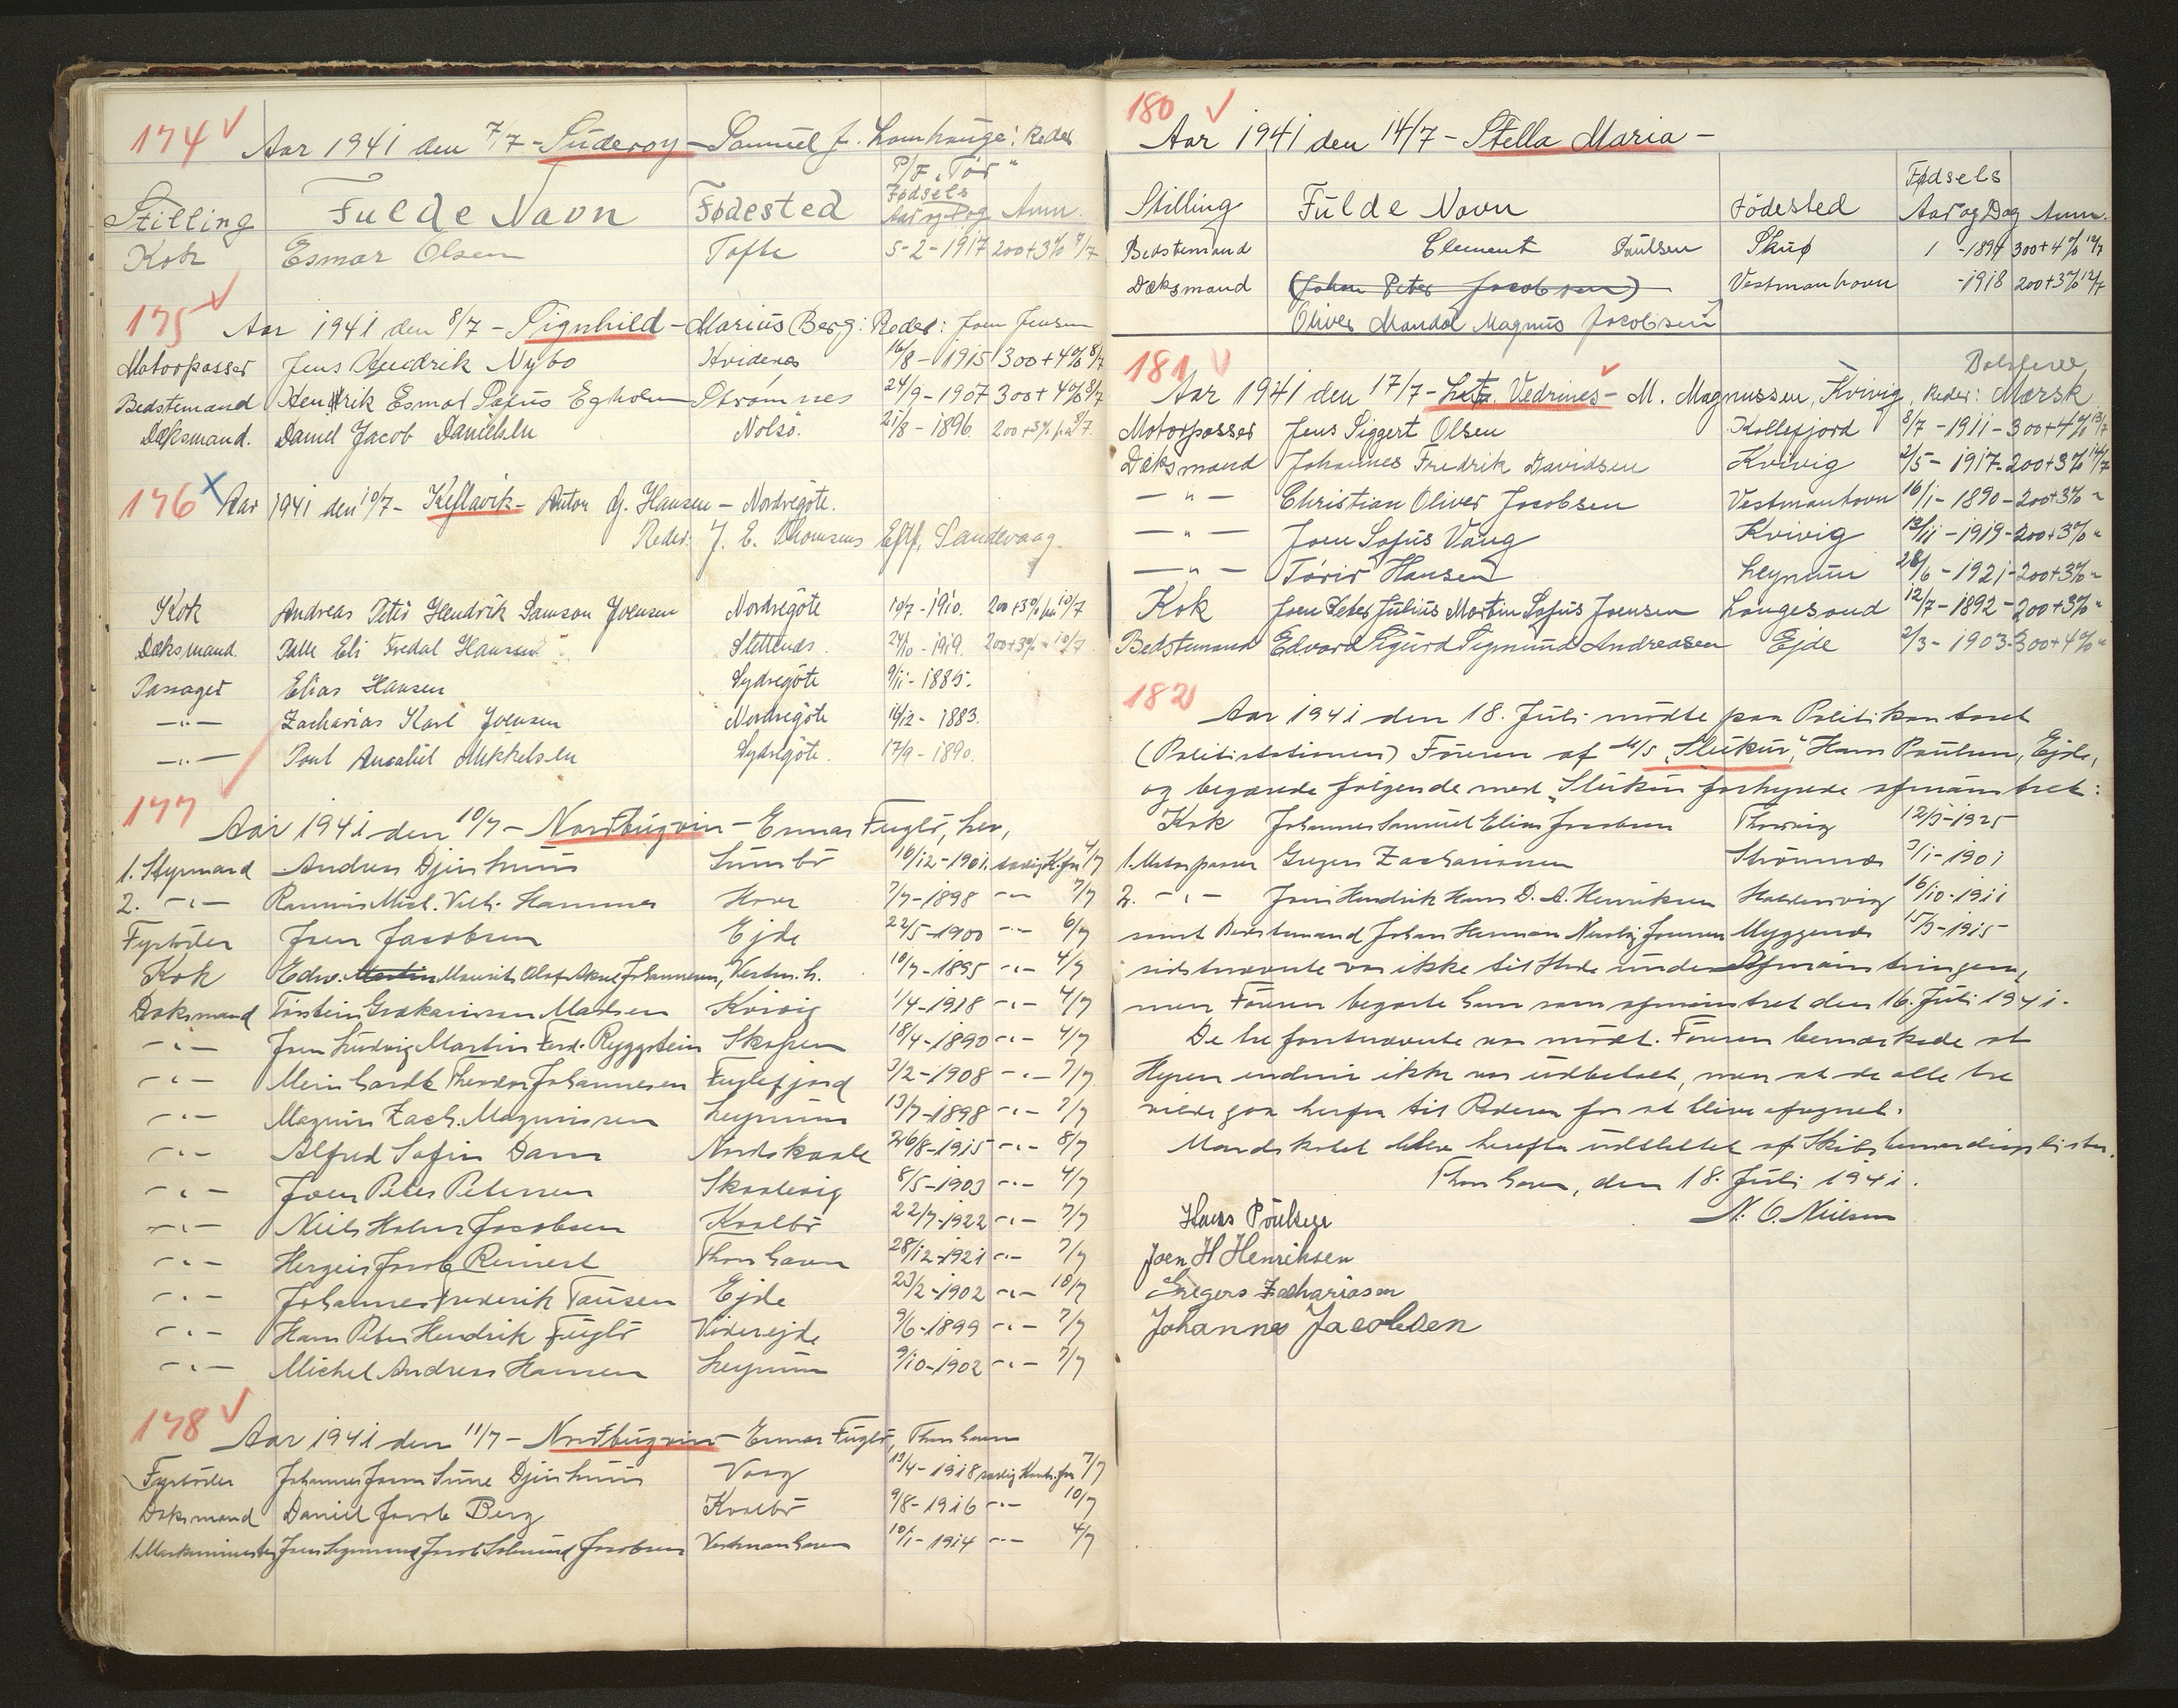 174 ✓ Aar 1941 den 7/7 - Suderoy - Samuel J. Lamhauge: Reder
P/F „Tor“
Stilling Fulde Navn Fødested Fødsels Aar og Dag Anm.
Kok Esmar Olsen Tofte 5-2-1917 200+3% 7/7
175 ✓ Aar 1941 den 8/7 - Signhild - Marius Berg: Reder: Joen Jensen
Motorpasser Jens Hendrik Nybo Hvidenes 16/8-1915 300+4% 8/7
Bedstemand Hendrik Esmar Sofus Egholm Strømnes 24/9-1907 300+4% 8/7
Dæksmand. Daniel Jacob Danielsen Nolsö. 21/8-1896 200+3% fra 8/7.
176 x Aar 1941 den 10/7 - Keflavik - Anton Dj. Hansen - Nordregöte.
Reder: J. E. Thomsens Eftf. Sandevaag.
Kok Andreas Peter Hendrik Samson Joensen Nordregöte 10/7-1910. 200+3% fra 10/7
Dæksmand. Palle Eli Fredal Hansen Slettenæs. 24/10-1919. 200+3% " 10/7
Passager Elias Hansen Sydregöte 9/11-1885.
—"— Zacharias Karl Joensen Nordregöte 14/12-1883.
—"— Poul Mikkelsen Sydregöte. 17/9-1890.
177 ✓ Aar 1941 den 10/7 - Nordbugvin - Ennar Fuglö, her,
1. Styrmand Andreas Djurhuus Sumbö 16/12-1901. særlig K. fra 4/7
2. —"— Rasmus Mich. Vilh. Hammer Hov 7/7-1898 —"— 7/7
Fyrböder Joen Jacobsen Ejde 22/5-1900 —"— 6/7
Kok Edw. Martin Maurits Olaf Johannesen, Vestm.h. 10/7-1895 —"— 4/7
Dæksmand Torstein Madsen Kvivig 1/4-1918 —"— 4/7
—"— Joen Ludvig Martin Ferd. Ryggstein Skopen 18/4-1890 —"— 4/7
—"— Meinhardt Theodor Johannesen Fuglefjord 3/2-1908 —"— 7/7
—"— Magnus Zach. Magnussen Leynum 13/7-1898 —"— 7/7
—"— Alfred Sofus Dam Nordskaale 26/8-1915 —"— 8/7
—"— Joen Peter Petersen Skaalevig 8/5-1903 —"— 4/7
—"— Niels Holm Jacobsen Kvalbö 22/7-1922 —"— 7/7
—"— Hergeir Jacob Reinert Thorshavn 28/12-1921 —"— 7/7
—"— Johannes Frederik Tausen Ejde 23/2-1902 —"— 10/7
—"— Hans Peter Hendrik Fuglö Viderejde 9/6-1899 —"— 7/7
—"— Michel Andreas Hansen Leynum 9/10-1902 —"— 7/7
178 ✓ Aar 1941 den 11/7 - Nordbugvin - Ennar Fuglö, Thorshavn
Fyrböder Johannes Joen Sune Djurhuus Vaag 13/4-1918 særlig Kontr. fra 7/7
Dæksmand Daniel Jacob Berg Kvalbö 9/8-1916 —"— 10/7
1. Maskinmester Joen Sigmund Jacob Jacobsen Vestmanhavn 10/1-1914 —"— 4/7
180 ✓ Aar 1941 den 14/7 - Stella Maria -
Stilling Fulde Navn Födested Fødsels Aar og Dag Anm.
Bedstemand Clement Paulsen Skuø 1 -1894 300+4% 12/7
Dæksmand (Johan Peter Jacobsen) Vestmanhavn -1918 200+3% 12/7
Oliver Mandal Magnus Jacobsen
181 ✓ Aar 1941 den 17/7 - Lt. Vedrines - M. Magnussen, Kvivig, Reder: Mærsk
Motorpasser Jens Siggert Olsen Kollefjord 8/7-1911-300+4% 13/7
Dæksmand Johannes Fredrik Davidsen Kvivig 2/5-1917-200+3% 14/7
—"— Christian Oliver Jacobsen Vestmanhavn 16/1-1890-200+3% "
—"— Joen Sofus Vang Kvivig 13/11-1919-200+3% "
—"— Torir Hansen Leynum 28/6-1921-200+3% "
Kok Joen Peter Julius Martin Sofus Joensen Langesand 12/7-1892-200+3% "
Bedstemand Edvard Sigurd Sigmund Andreasen Ejde 2/3-1903-300+4% "
182 Aar 1941 den 18. Juli mödte paa Politikontoret
(Politistationen) Föreren af M/S „Slukur“, Hans Paulsen, Ejde,
og begærede følgende med „Slukur“ forhyrede afmönstret:
Kok Johannes Samuel Elias Jacobsen Thorsvig 12/5-1925
1. Motorpasser Gregers Zachariasen Strömnæs 3/1-1901
2. —"— Joen Hendrik Hans D. A. Henriksen Haldersvig 16/10-1911
samt Bedstemand Johan Herman Joensen Myggenæs 15/3-1915-
sidstnævnte var ikke til Stede under Afmönstringen,
men Föreren begærte ham som afmönstret den 16. Juli 1941.
De tre förstnævnte var mödt. Föreren bemærkede at
Hyren endnu ikke var udbetalt, men at de alle tre
vilde gaa herfra til Rederen for at blive afregnet.
Mandskabet blev herefter udslettet af Skibsbemandingslisten.
Thorshavn, den 18. Juli 1941.
N. O. Nielsen
Hans Poulsen
Joen H Henriksen
Gregers Zachariasen
Johannes Jacobsen